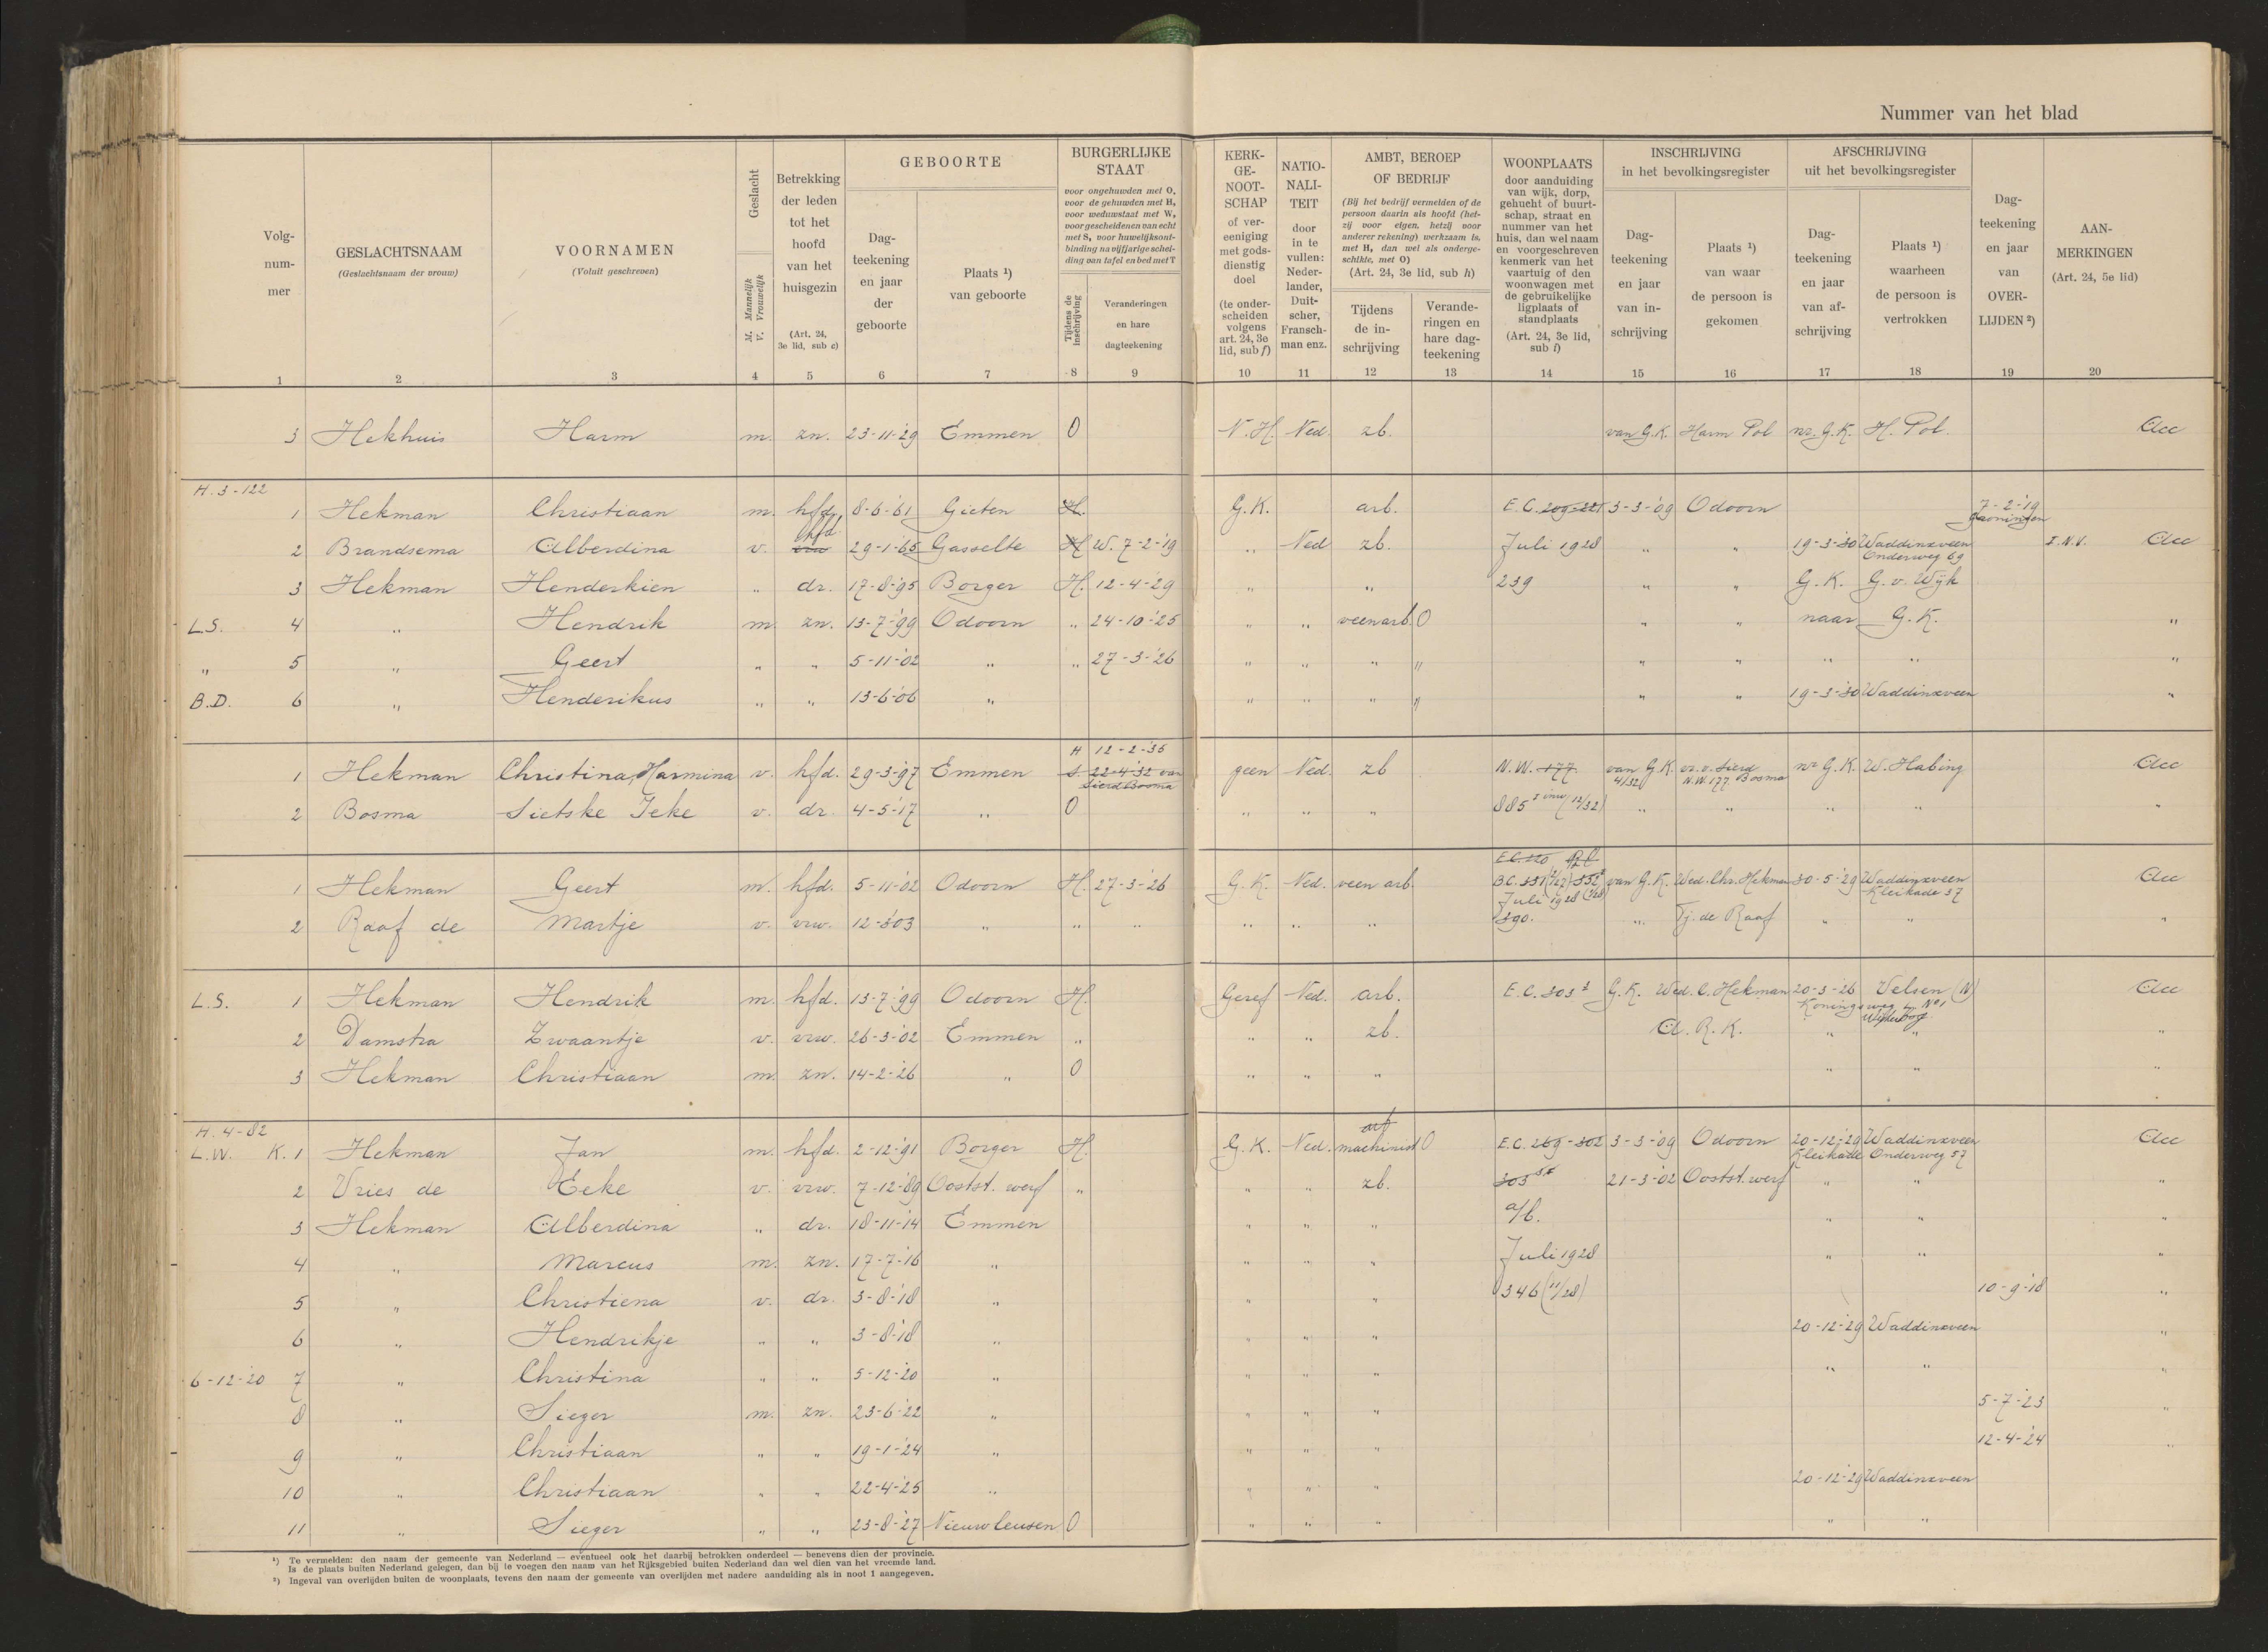 Nummer van het blad
Volg-
num-
mer
GESLACHTSNAAM
(Geslachtsnaam der vrouw)
VOORNAMEN
(Voluit geschreven)
Geslacht
M. Mannelijk
V. Vrouwelijk
Betrekking
der leden
tot het
hoofd
van het
huisgezin
(Art. 24,
3e lid, sub c)
GEBOORTE
Dag-
teekening
en jaar
der
geboorte
Plaats ¹)
van geboorte
BURGERLIJKE
STAAT
voor ongehuwden met O,
voor de gehuwden met H,
voor weduwstaat met W,
voor gescheidenen van echt
met S, voor huwelijksont-
binding na vijfjarige schei-
ding van tafel en bed met T
Tijdens de
inschrijving
Veranderingen
en hare
dagteekening
KERK-
GE-
NOOT-
SCHAP
of ver-
eeniging
met gods-
dienstig
doel
(te onder-
scheiden
volgens
art. 24, 3e
lid, sub f)
NATIO-
NALI-
TEIT
door
in te
vullen:
Neder-
lander,
Duit-
scher,
Fransch-
man enz.
AMBT, BEROEP
OF BEDRIJF
(Bij het bedrijf vermelden of de
persoon daarin als hoofd (het-
zij voor eigen, hetzij voor
anderer rekening) werkzaam is,
met H, dan wel als onderge-
schikte, met O)
(Art. 24, 3e lid, sub h)
Tijdens
de in-
schrijving
Verande-
ringen en
hare dag-
teekening
WOONPLAATS
door aanduiding
van wijk, dorp,
gehucht of buurt-
schap, straat en
nummer van het
huis, dan wel naam
en voorgeschreven
kenmerk van het
vaartuig of den
woonwagen met
de gebruikelijke
ligplaats of
standplaats
(Art. 24, 3e lid,
sub i)
INSCHRIJVING
in het bevolkingsregister
Dag-
teekening
en jaar
van in-
schrijving
Plaats ¹)
van waar
de persoon is
gekomen
AFSCHRIJVING
uit het bevolkingsregister
Dag-
teekening
en jaar
van af-
schrijving
Plaats ¹)
waarheen
de persoon is
vertrokken
Dag-
teekening
en jaar
van
OVER-
LIJDEN ²)
AAN-
MERKINGEN
(Art. 24, 5e lid)
1 2 3 4 5 6 7 8 9 10 11 12 13 14 15 16 17 18 19 20
3 Hekhuis Harm m. zn. 23-11-'29 Emmen O N.H. Ned. zb. van G.K. Harm Pol nr. G.K. H. Pol.
H. 3-122
1 Hekman Christiaan m. hfd. 8-6-'61 Gieten H. G.K. arb. E.C. 3-3-'09 Odoorn 7-2-'19 Groningen
2 Brandsema Alberdina v. hfd. 29-1-'65 Gasselte H W. 7-2-'19 „ Ned zb. Juli 1928 „ „ 19-3-'30 Waddinxveen Onderweg 69
3 Hekman Henderkien „ dr. 17-8-'95 Borger H. 12-4-'29 „ „ 239 „ „ G.K. G. v. Wijk
L.S. 4 „ Hendrik m. zn. 13-7-'99 Odoorn „ 24-10-'25 „ „ veenarb. O „ „ naar G.K. „
„ 5 „ Geert „ „ 5-11-'02 „ „ 27-3-'26 „ „ „ „ „ „ „ „ „
B.D. 6 „ Henderikus „ „ 13-6-'06 „ „ „ „ „ „ „ 19-3-'30 Waddinxveen „
H 12-2-'35
1 Hekman Christina Harmina v. hfd. 29-3-'97 Emmen S. 22-4-'32 van Sierd Bosma geen Ned. zb N.W. 177. van G.K. 4/32 vr. v. Sierd Bosma N.W. 177. nr G.K. W. Habing
2 Bosma Sietske Jeke v. dr. 4-5-'17 „ O „ „ „ 885 (12/32) „ „ „ „ „
E.C. 320
1 Hekman Geert m. hfd. 5-11-'02 Odoorn H. 27-3-'26 G.K. Ned. veen arb. B.C. van G.K. Wed. Chr. Hekman 30-5-'29 Waddinxveen Kleikade 37
Juli 1928
2 Raaf de Martje v. vrw. 12-3-'03 „ „ „ „ „ „ 390. „ Tj. de Raaf „ „ „
L.S. 1 Hekman Hendrik m. hfd. 13-7-'99 Odoorn H. Geref Ned. arb. E.C. 303 G.K. Wed. C. Hekman 20-3-'26 Velsen (N)
Koningsweg No 1
2 Damstra Zwaantje v. vrw. 26-3-'02 Emmen „ „ „ zb. A.R.K. „ „ „
3 Hekman Christiaan m. zn. 14-2-'26 „ O „ „ „ „ „ „
H. 4-82
L.W. K. 1 Hekman Jan m. hfd. 2-12-'91 Borger H. G.K. Ned. arb machinist O E.C. 269-302 3-3-'09 Odoorn 20-12-'29 Waddinxveen Kleikade Onderweg 57
2 Vries de Eeke v. vrw. 7-12-'89 Ooststwerf „ „ „ zb. 303 21-3-'02 Ooststwerf „ „ „
3 Hekman Alberdina „ dr. 18-11-'14 Emmen „ „ „ a/b. „ „ „
4 „ Marcus m. zn. 17-7-'16 „ „ „ „ Juli 1928 „ „ „
5 „ Christiena v. dr. 3-8-'18 „ „ „ „ 346 (11/28) 10-9-'18 „
6 „ Hendrikje „ „ 3-8-'18 „ „ „ „ 20-12-'29 Waddinxveen „
6-12-'20 7 „ Christina „ „ 5-12-'20 „ „ „ „ „ „ „
8 „ Sieger m. zn. 23-6-'22 „ „ „ „ 5-7-'23 „
9 „ Christiaan „ „ 19-1-'24 „ „ „ „ 12-4-'24 „
10 „ Christiaan „ „ 22-4-'25 „ „ „ „ 20-12-'29 Waddinxveen
11 „ Sieger „ „ 23-8-'27 Nieuwleusen O „ „ „ „ „
¹) Te vermelden: den naam der gemeente van Nederland — eventueel ook het daarbij betrokken onderdeel — benevens dien der provincie.
Is de plaats buiten Nederland gelegen, dan bij te voegen den naam van het Rijksgebied buiten Nederland dan wel dien van het vreemde land.
²) Ingeval van overlijden buiten de woonplaats, tevens den naam der gemeente van overlijden met nadere aanduiding als in noot 1 aangegeven.